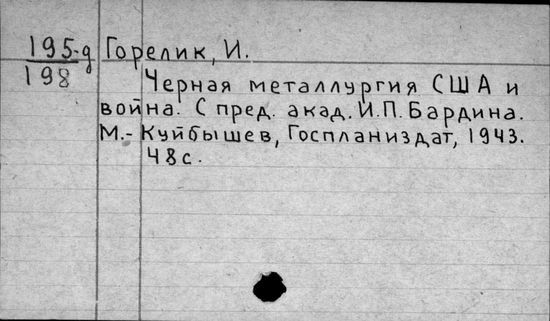 195-д Горелик, И.
198
Черная металлургия США и
война. С пред. акад. И.П. Бардина.
М.- Куйбышев, Госпланиздат, 1943.
48с.